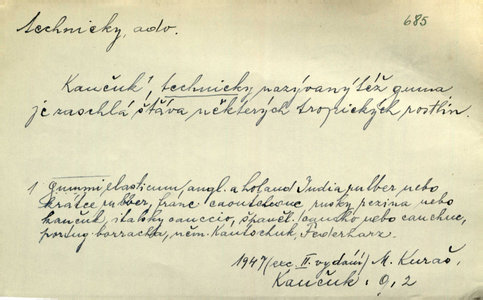 technicky, adv.
685
Kaučuk¹, technicky nazývaný též guma
je zaschlá šťáva některých tropických rostlin.
1 Gummi elasticum, angl. a holand India rubber nebo
krátce rubber, franc caoutchouc rusky rezina nebo
kaučuk, italsky cauccio, španěl. caucho nebo cauchuc,
portug borracha, něm. Kautschuk, Federharz.
1947 (exc. II. vydání) M. Kuraš,
Kaučuk: 0, 2